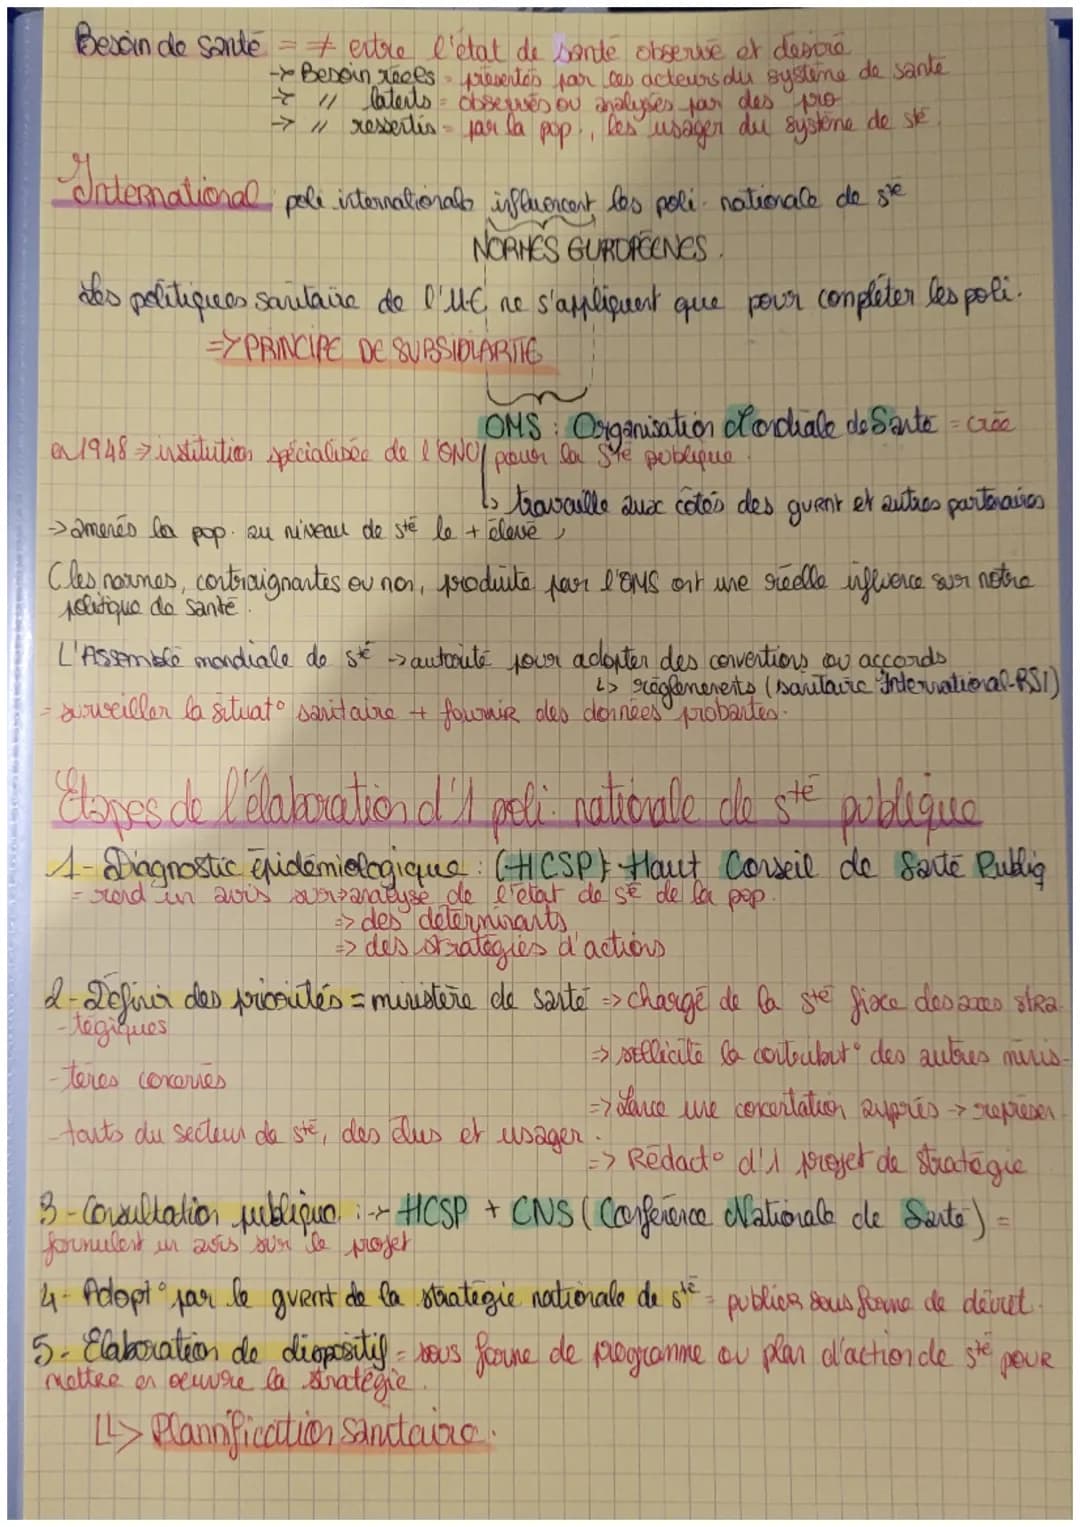 Besoin de santé = ≠ entre l'état de santé observé et désiré
-> Besoin réels = présentés par les acteurs du système de santé
-> " latents = observés ou analysés par des pro
-> " ressentis = par la pop., les usager du système de sté
International poli internationale influencent les poli. nationale de sté
NORMES EUROPÉENES.
Les politiques sanitaire de l'U.E, ne s'appliquent que pour compléter les poli.
=> PRINCIPE DE SUBSIDIARTIE
OMS : Organisation Mondiale de Santé = créé
en 1948 => institution spécialisée de l'ONU pour la sté publique.
↳ travaille aux côtés des gvent et autres partenaires
-> amenés la pop. au niveau de sté le + élevé
(les normes, contraignantes ou non, produite par l'OMS ont une réelle influence sur notre
politique de santé.
L'Assemblé mondiale de sté -> autorité pour adopter des conventions ou accords
↳ réglements (sanitaire International-RSI)
= surveiller la situat° sanitaire + fournir des données probantes.
Etapes de l'élaboration d'1 poli. nationale de sté publique
1- Diagnostic épidémiologique : (HCSP) Haut Conseil de Santé Publiq
= rend un avis sur => analyse de l'état de sté de la pop.
=> des déterminants
=> des stratégies d'actions
2- Définir des priorités = ministère de santé => chargé de la sté fixe des axes stra-
-tégiques
=> sollicite la contribut° des autres minis-
-tères concernés
=> Lance une concertation auprès -> représen-
-tants du secteur de sté, des élus et usager.
=> Rédact° d'1 projet de stratégie
3- Consultation publique : -> HCSP + CNS (Conférence Nationale de Santé) =
formulent un avis sur le projet
4- Adopt° par le gvent de la stratégie nationale de sté = publier sous forme de décret.
5- Elaboration de dispositif = sous forme de programme ou plan d'action de sté pour
mettre en oeuvre la stratégie.
↳> Plannification sanitaire.